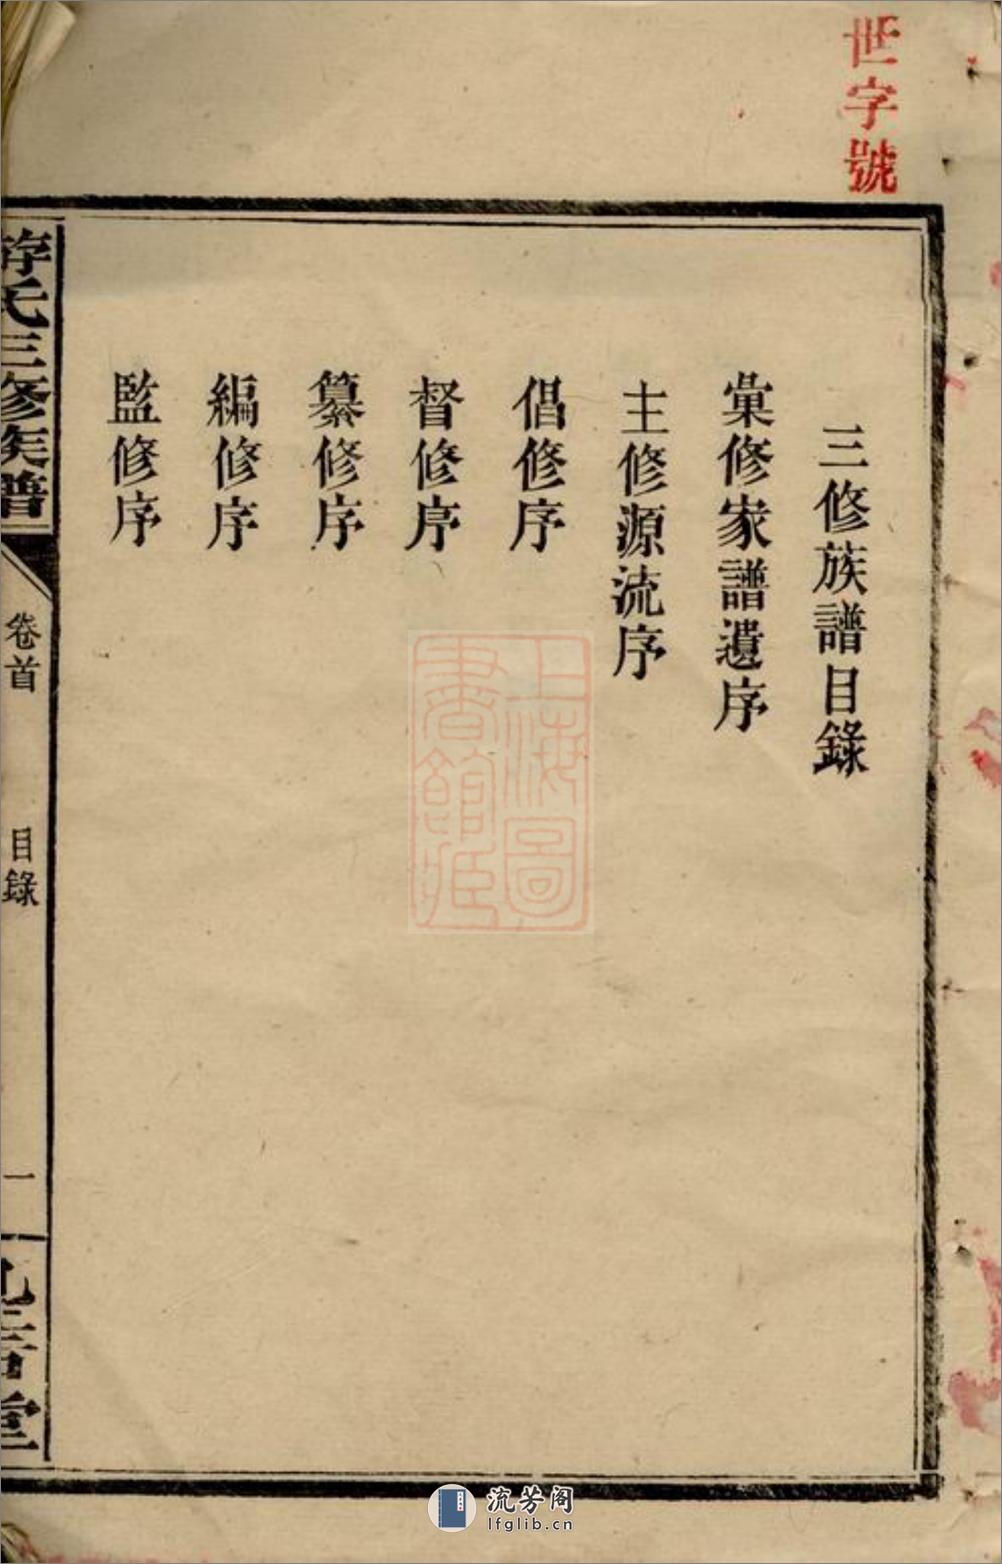 世字號
三修族譜目錄
彙修家譜遺序
主修源流序
倡修序
督修序
纂修序
編修序
監修序
氏三修族譜
卷首
目錄
一
堂
上海圖
書館藏
流芳阁
lfglib.cn